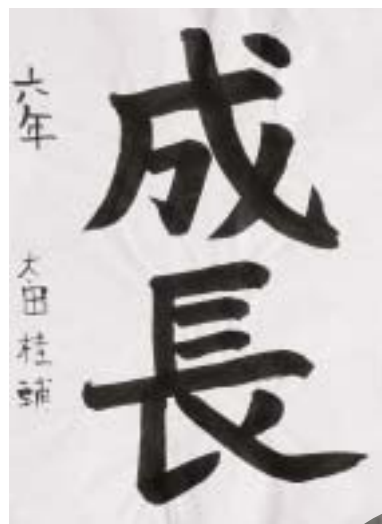 成長
六年
太田桂輔